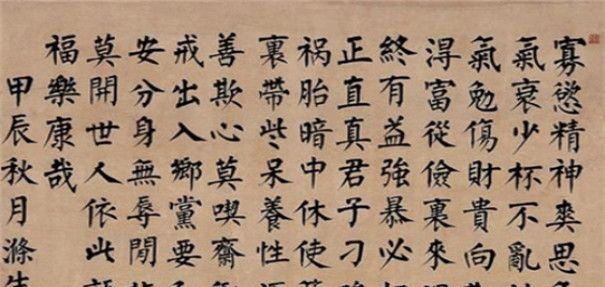 寡慾精神爽思
氣衰少杯不亂
氣勉傷財貴向
淂富從儉裏來
終有益強暴必
正直真君子刁
祸胎暗中休使
裏帶些呆養性
善欺心莫喫齋
戒出入鄉黨要
安分身無辱閒
莫開世人依此
福樂康哉
甲辰秋月滌生